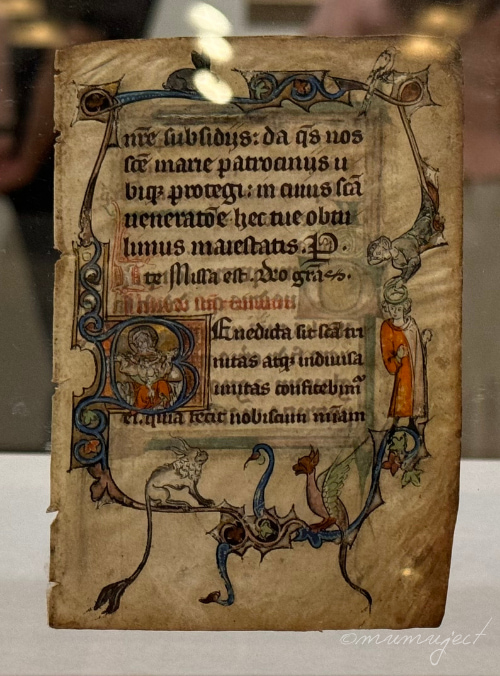 nr̄e subsidijs: da q̄s nos
sc̄e marie patrocinijs u
biq; protegi: in cuius sc̄a
ueneratōe hec tue obtu
limus maiestatis. P.
te Missa est. Deo gr̄as.
Benedicta sit sc̄a tri
nitas atq; indiuisa
unitas confitebim᷒
ei. quia fecit nobiscum m̄iam
©mumuject